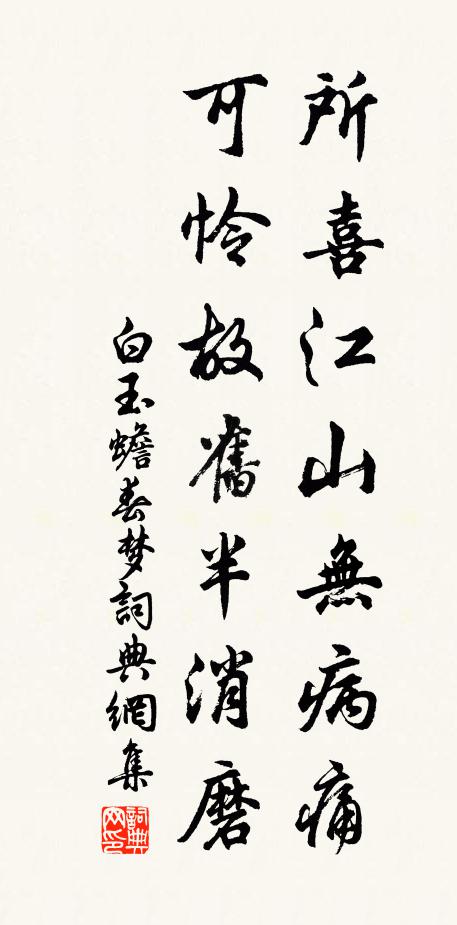 所喜江山無病痛
可怜故舊半消磨
白玉蟾春梦詞典網集
詞典网印